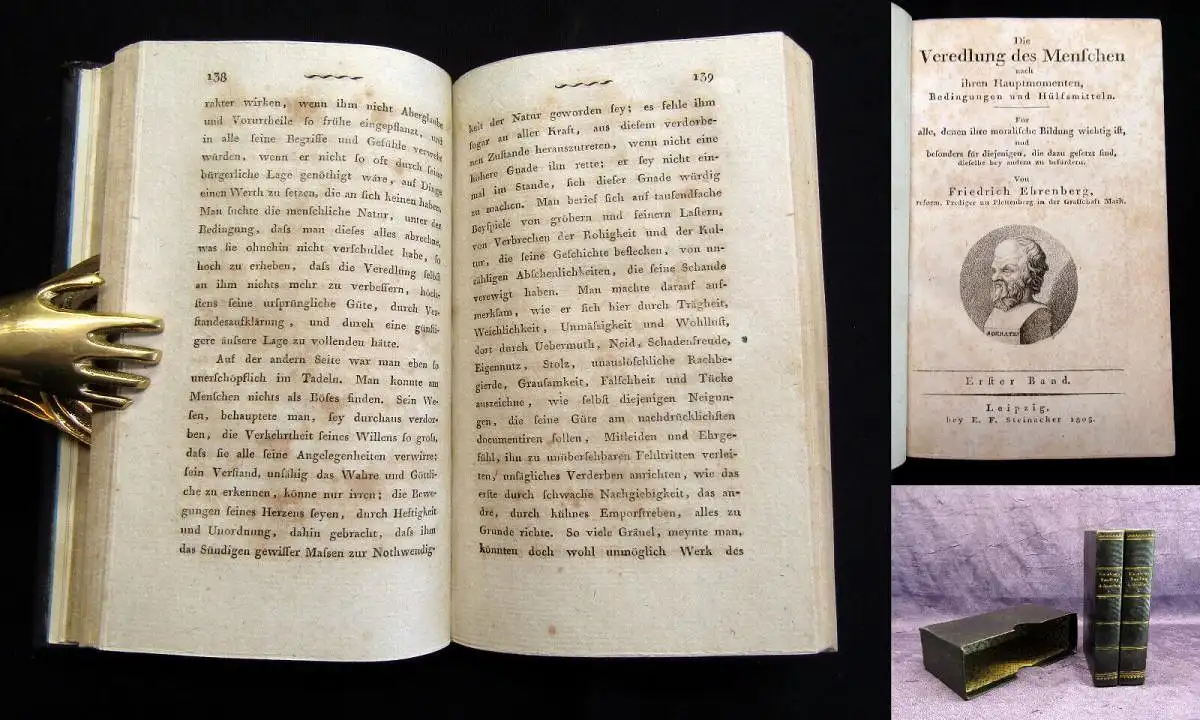 138
rakter wirken, wenn ihm nicht Aberglaube
und Vorurtheile ſo frühe eingepflanzt, und
in alle ſeine Begriffe und Gefühle verwebt
würden, wenn er nicht ſo oft durch ſeine
bürgerliche Lage genöthigt wäre, auf Dinge
einen Werth zu ſetzen, die an ſich keinen haben.
Man ſuchte die menſchliche Natur, unter der
Bedingung, daſs man dieſes alles abrechne,
was ſie ohnehin nicht verſchuldet habe, ſo
hoch zu erheben, daſs die Veredlung ſelbſt
an ihm nichts mehr zu verbeſſern, höch-
ſtens ſeine urſprüngliche Güte, durch Ver-
ſtandesaufklärung, und durch eine günſti-
gere äuſsere Lage zu vollenden hätte.
Auf der andern Seite war man eben ſo
unerſchöpflich im Tadeln. Man konnte am
Menſchen nichts als Böſes finden. Sein We-
ſen, behauptete man, ſey durchaus verdor-
ben, die Verkehrtheit ſeines Willens ſo groſs,
daſs ſie alle ſeine Angelegenheiten verwirre;
ſein Verſtand, unfähig das Wahre und Göttli-
che zu erkennen, könne nur irren; die Bewe-
gungen ſeines Herzens ſeyen, durch Heftigkeit
und Unordnung, dahin gebracht, daſs ihm
das Sündigen gewiſſer Maſsen zur Nothwendig-
139
keit der Natur geworden ſey; es fehle ihm
ſogar an aller Kraft, aus dieſem verdorbe-
nen Zuſtande herauszutreten, wenn nicht eine
höhere Gnade ihn rette; er ſey nicht ein-
mal im Stande, ſich dieſer Gnade würdig
zu machen. Man berief ſich auf tauſendfache
Beyſpiele von gröbern und feinern Laſtern,
von Verbrechen der Rohigkeit und der Kul-
tur, die ſeine Geſchichte beflecken, von un-
zähligen Abſcheulichkeiten, die ſeine Schande
verewigt haben. Man machte darauf auf-
merkſam, wie er ſich hier durch Trägheit,
Weichlichkeit, Unmäſsigkeit und Wohlluſt,
dort durch Uebermuth, Neid, Schadenfreude,
Eigennutz, Stolz, unauslöſchliche Rachbe-
gierde, Grauſamkeit, Falſchheit und Tücke
auszeichne, wie ſelbſt diejenigen Neigun-
gen, die ſeine Güte am nachdrücklichſten
documentiren ſollen, Mitleiden und Ehrge-
fühl, ihn zu unüberſehbaren Fehltritten verlei-
ten, unſägliches Verderben anrichten, wie das
erſte durch ſchwache Nachgiebigkeit, das an-
dre, durch kühnes Emporſtreben, alles zu
Grunde richte. So viele Gräuel, meynte man,
könnten doch wohl unmöglich Werk des
Die
Veredlung des Menſchen
nach
ihren Hauptmomenten,
Bedingungen und Hülfsmitteln.
Für
alle, denen ihre moraliſche Bildung wichtig iſt,
und
beſonders für diejenigen, die dazu geſetzt ſind,
dieſelbe bey andern zu befördern.
Von
Friedrich Ehrenberg,
reform. Prediger zu Plettenberg in der Grafſchaft Mark.
SOKRATES
Erſter Band.
Leipzig,
bey E. F. Steinacker 1803.